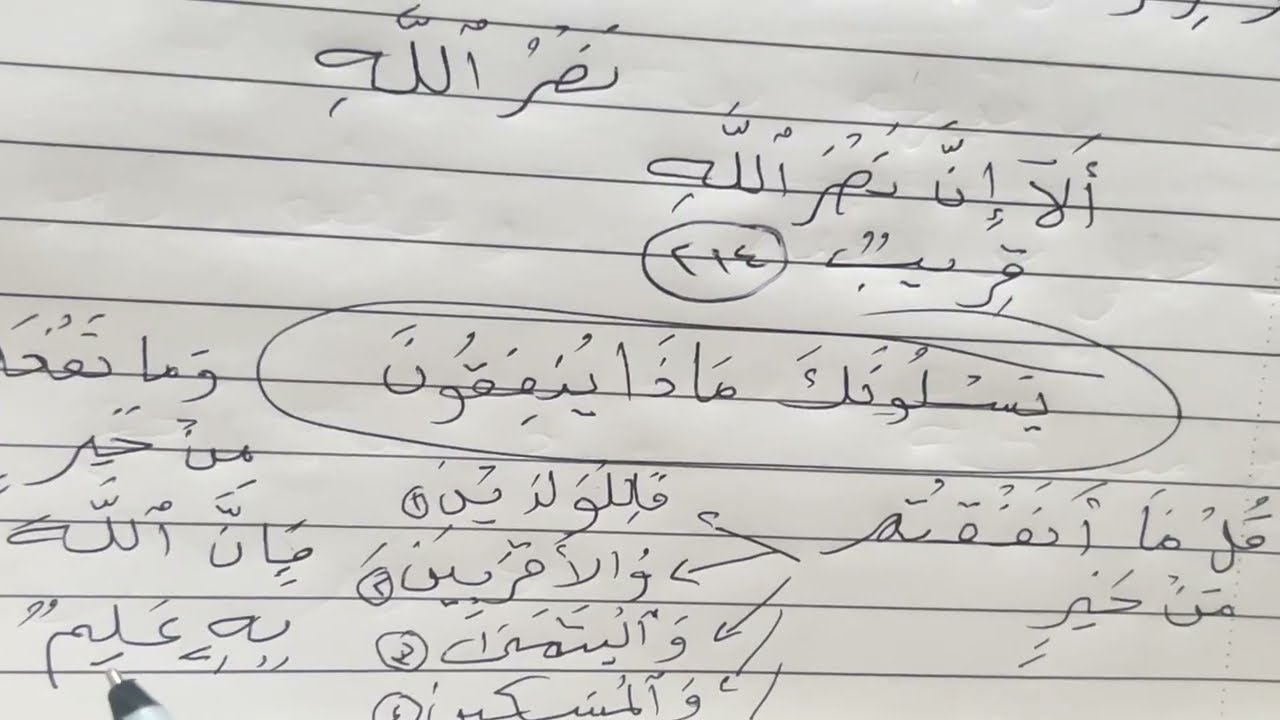 نَصْرُ ٱللَّهِ
أَلَآ إِنَّ نَصْرَ ٱللَّهِ
قَرِيبٌ ٢١٤
يَسْـَٔلُونَكَ مَاذَا يُنفِقُونَ
قُلْ مَا أَنفَقْتُم
مِنْ خَيْرٍ
فَلِلْوَلِدَيْنِ ١
وَالأَقْرَبِينَ ٢
وَٱلْيَتَمَىٰ ٣
وَٱلْمَسَكِينِ ٤
وَمَا تَفْعَ
مِنْ خَيْرٍ
فَإِنَّ ٱللَّهَ
بِهِ عَلِيمٌ